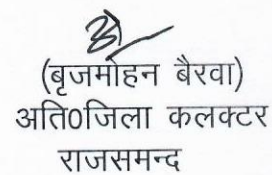 (बृजमोहन बैरवा)
अति0जिला कलक्टर
राजसमन्द